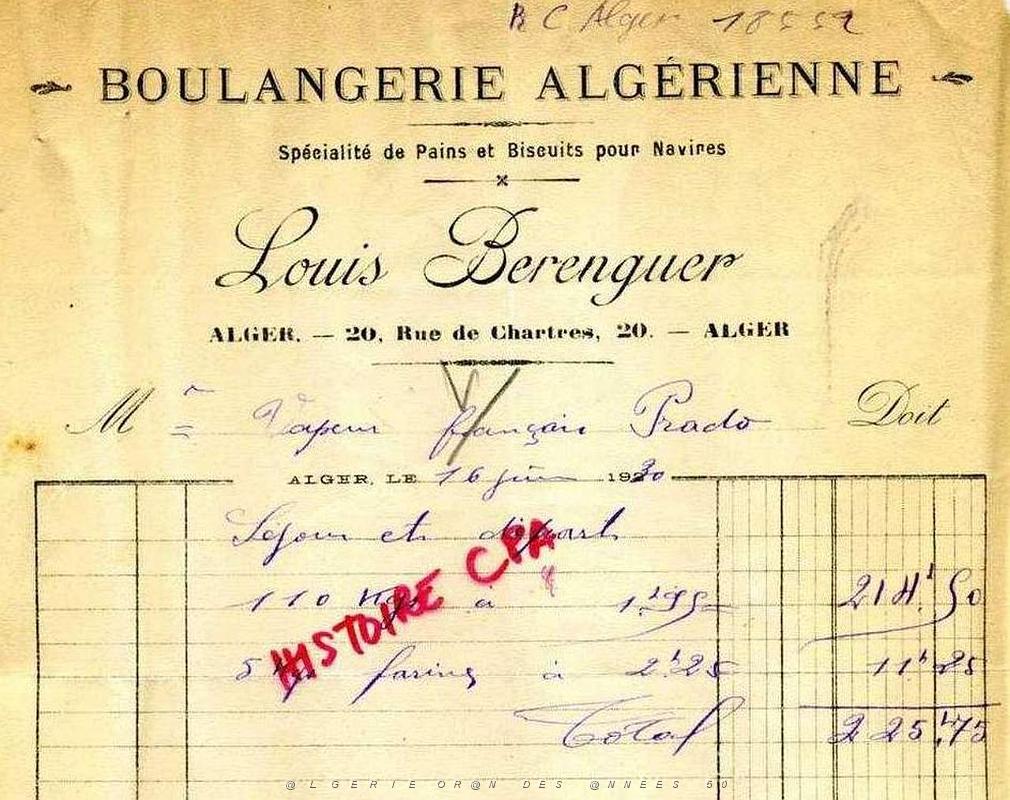 R C Alger 18552
BOULANGERIE ALGÉRIENNE
Spécialité de Pains et Biscuits pour Navires
Louis Berenguer
ALGER. — 20, Rue de Chartres, 20. — ALGER
M r Vapeur français Prado Doit
ALGER, LE 16 juin 1930
Séjour et départ
HISTOIRE CPA
110 Kgs à 1f95 214f50
5 Kgs farine à 2f25 11f25
Total 225f75
@LGERIE OR@N DES @NNEES 50